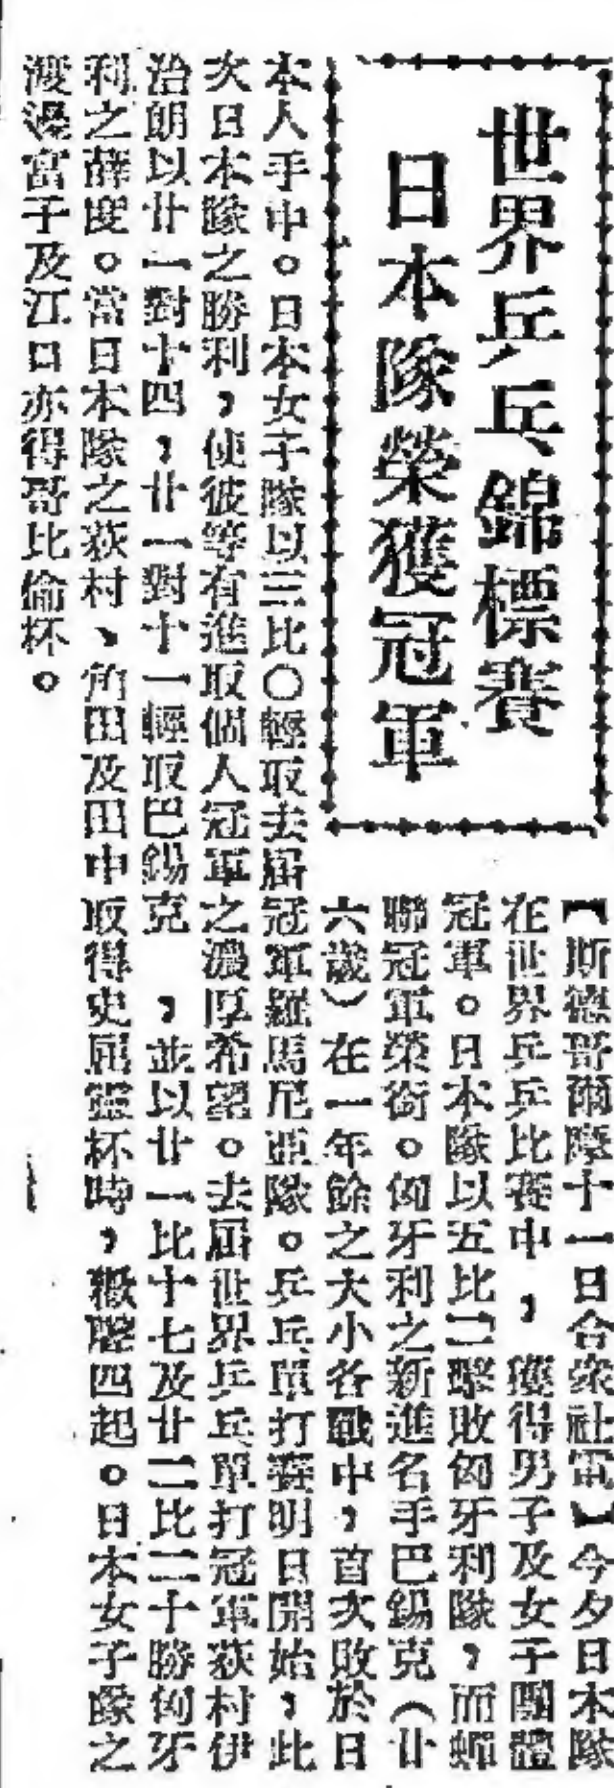 世界乒乓錦標賽
日本隊榮獲冠軍
【斯德哥爾摩十一日合衆社電】今夕日本隊
在世界乒乓比賽中,獲得男子及女子團體
冠軍。日本隊以五比二擊敗匈牙利隊,而蟬
聯冠軍榮銜。匈牙利之新進名手巴錫克(廿
六歲)在一年餘之大小各戰中,首次敗於日
本人手中。日本女子隊以三比〇輕取去屆冠軍羅馬尼亞隊。乒乓單打賽明日開始,此
次日本隊之勝利,使彼等有進取個人冠軍之濃厚希望。去屆世界乒乓單打冠軍荻村伊
治朗以廿一對十四,廿一對十一輕取巴錫克,並以廿一比十七及廿二比二十勝匈牙
利之薛度。當日本隊之荻村、角田及田中取得史屈靈杯時,歡聲四起。日本女子隊之
渡邊富子及江口亦得哥比倫杯。